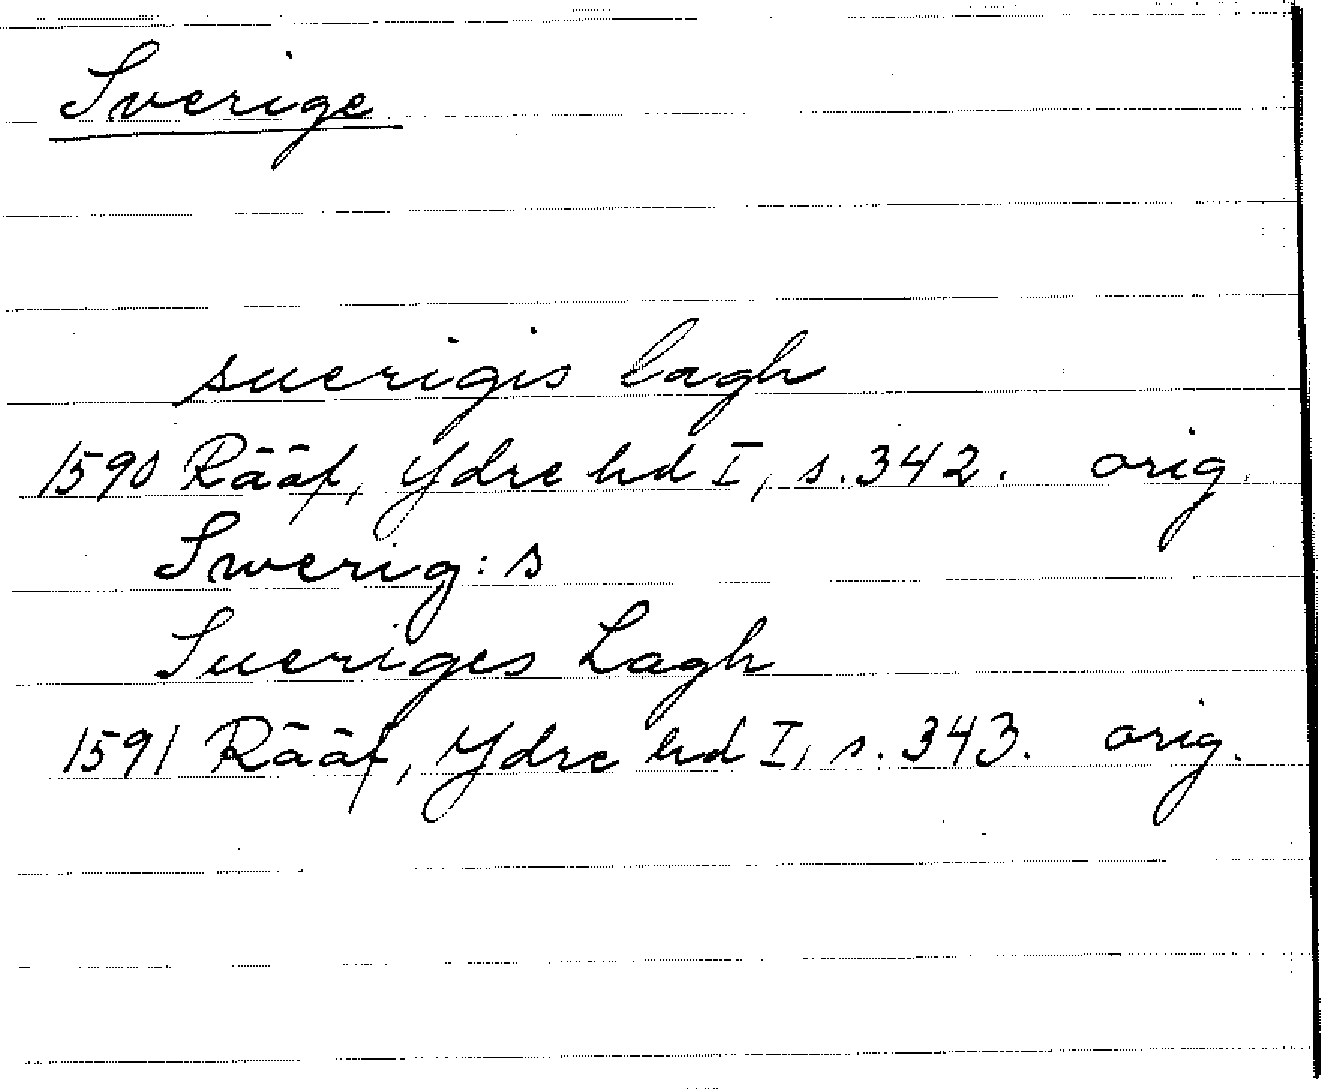 Sverige
suerigis lagh
1590 Rääf, Ydre hd I, s. 342. orig.
Swerig: s
Sueriges Lagh
1591 Rääf, Ydre hd I, s. 343. orig.